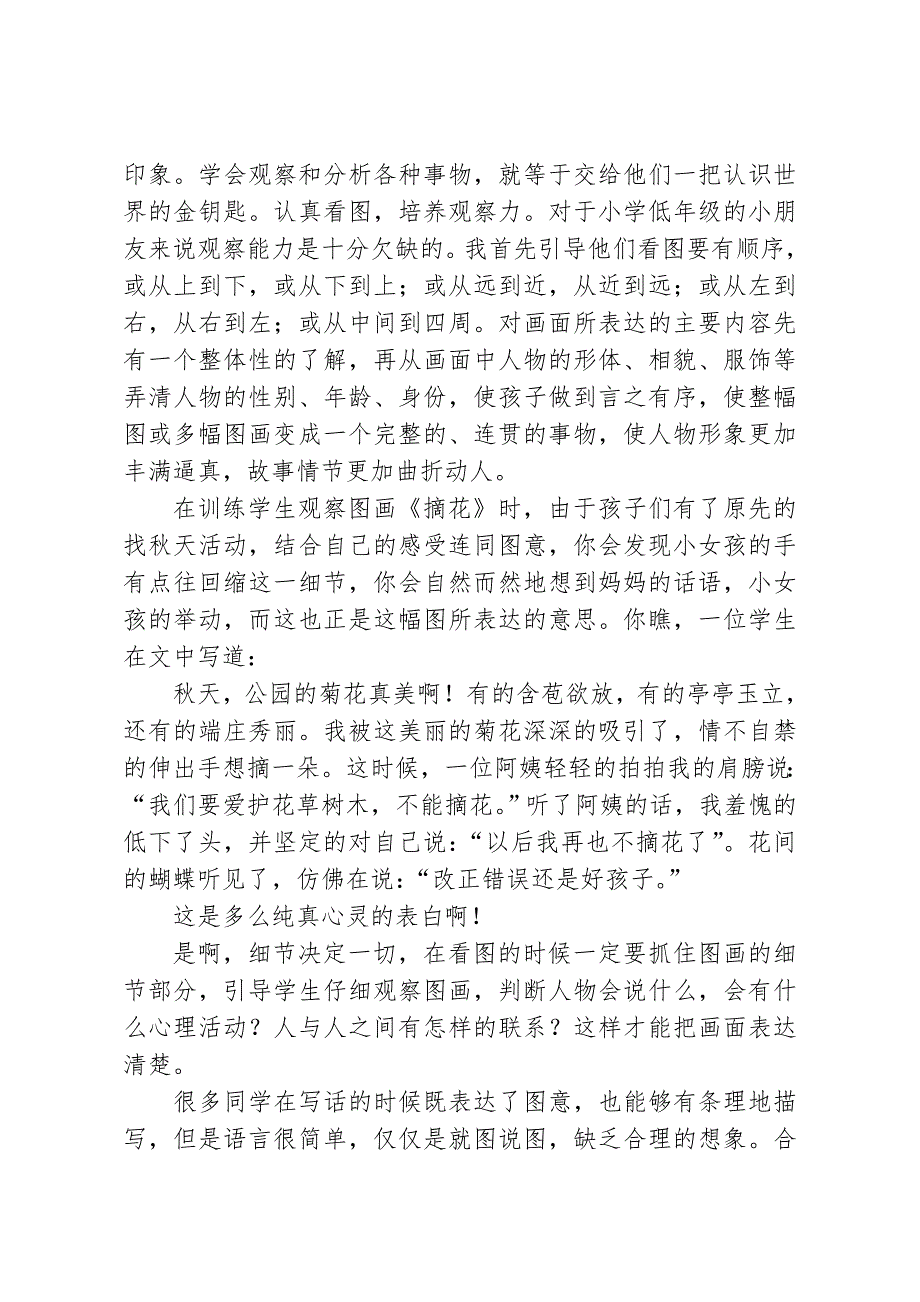 印象。学会观察和分析各种事物，就等于交给他们一把认识世
界的金钥匙。认真看图，培养观察力。对于小学低年级的小朋
友来说观察能力是十分欠缺的。我首先引导他们看图要有顺序，
或从上到下，或从下到上；或从远到近，从近到远；或从左到
右，从右到左；或从中间到四周。对画面所表达的主要内容先
有一个整体性的了解，再从画面中人物的形体、相貌、服饰等
弄清人物的性别、年龄、身份，使孩子做到言之有序，使整幅
图或多幅图画变成一个完整的、连贯的事物，使人物形象更加
丰满逼真，故事情节更加曲折动人。
在训练学生观察图画《摘花》时，由于孩子们有了原先的
找秋天活动，结合自己的感受连同图意，你会发现小女孩的手
有点往回缩这一细节，你会自然而然地想到妈妈的话语，小女
孩的举动，而这也正是这幅图所表达的意思。你瞧，一位学生
在文中写道：
秋天，公园的菊花真美啊！有的含苞欲放，有的亭亭玉立，
还有的端庄秀丽。我被这美丽的菊花深深的吸引了，情不自禁
的伸出手想摘一朵。这时候，一位阿姨轻轻的拍拍我的肩膀说：
“我们要爱护花草树木，不能摘花。”听了阿姨的话，我羞愧的
低下了头，并坚定的对自己说：“以后我再也不摘花了”。花间
的蝴蝶听见了，仿佛在说：“改正错误还是好孩子。”
这是多么纯真心灵的表白啊！
是啊，细节决定一切，在看图的时候一定要抓住图画的细
节部分，引导学生仔细观察图画，判断人物会说什么，会有什
么心理活动？人与人之间有怎样的联系？这样才能把画面表达
清楚。
很多同学在写话的时候既表达了图意，也能够有条理地描
写，但是语言很简单，仅仅是就图说图，缺乏合理的想象。合